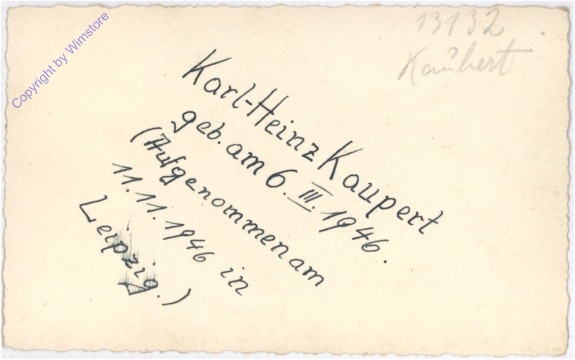 Copyright by Wimstore
13132
Kaubert
Karl-Heinz Kaupert
geb. am 6. III. 1946.
(Aufgenommen am
11.11.1946 in
Leipzig.)